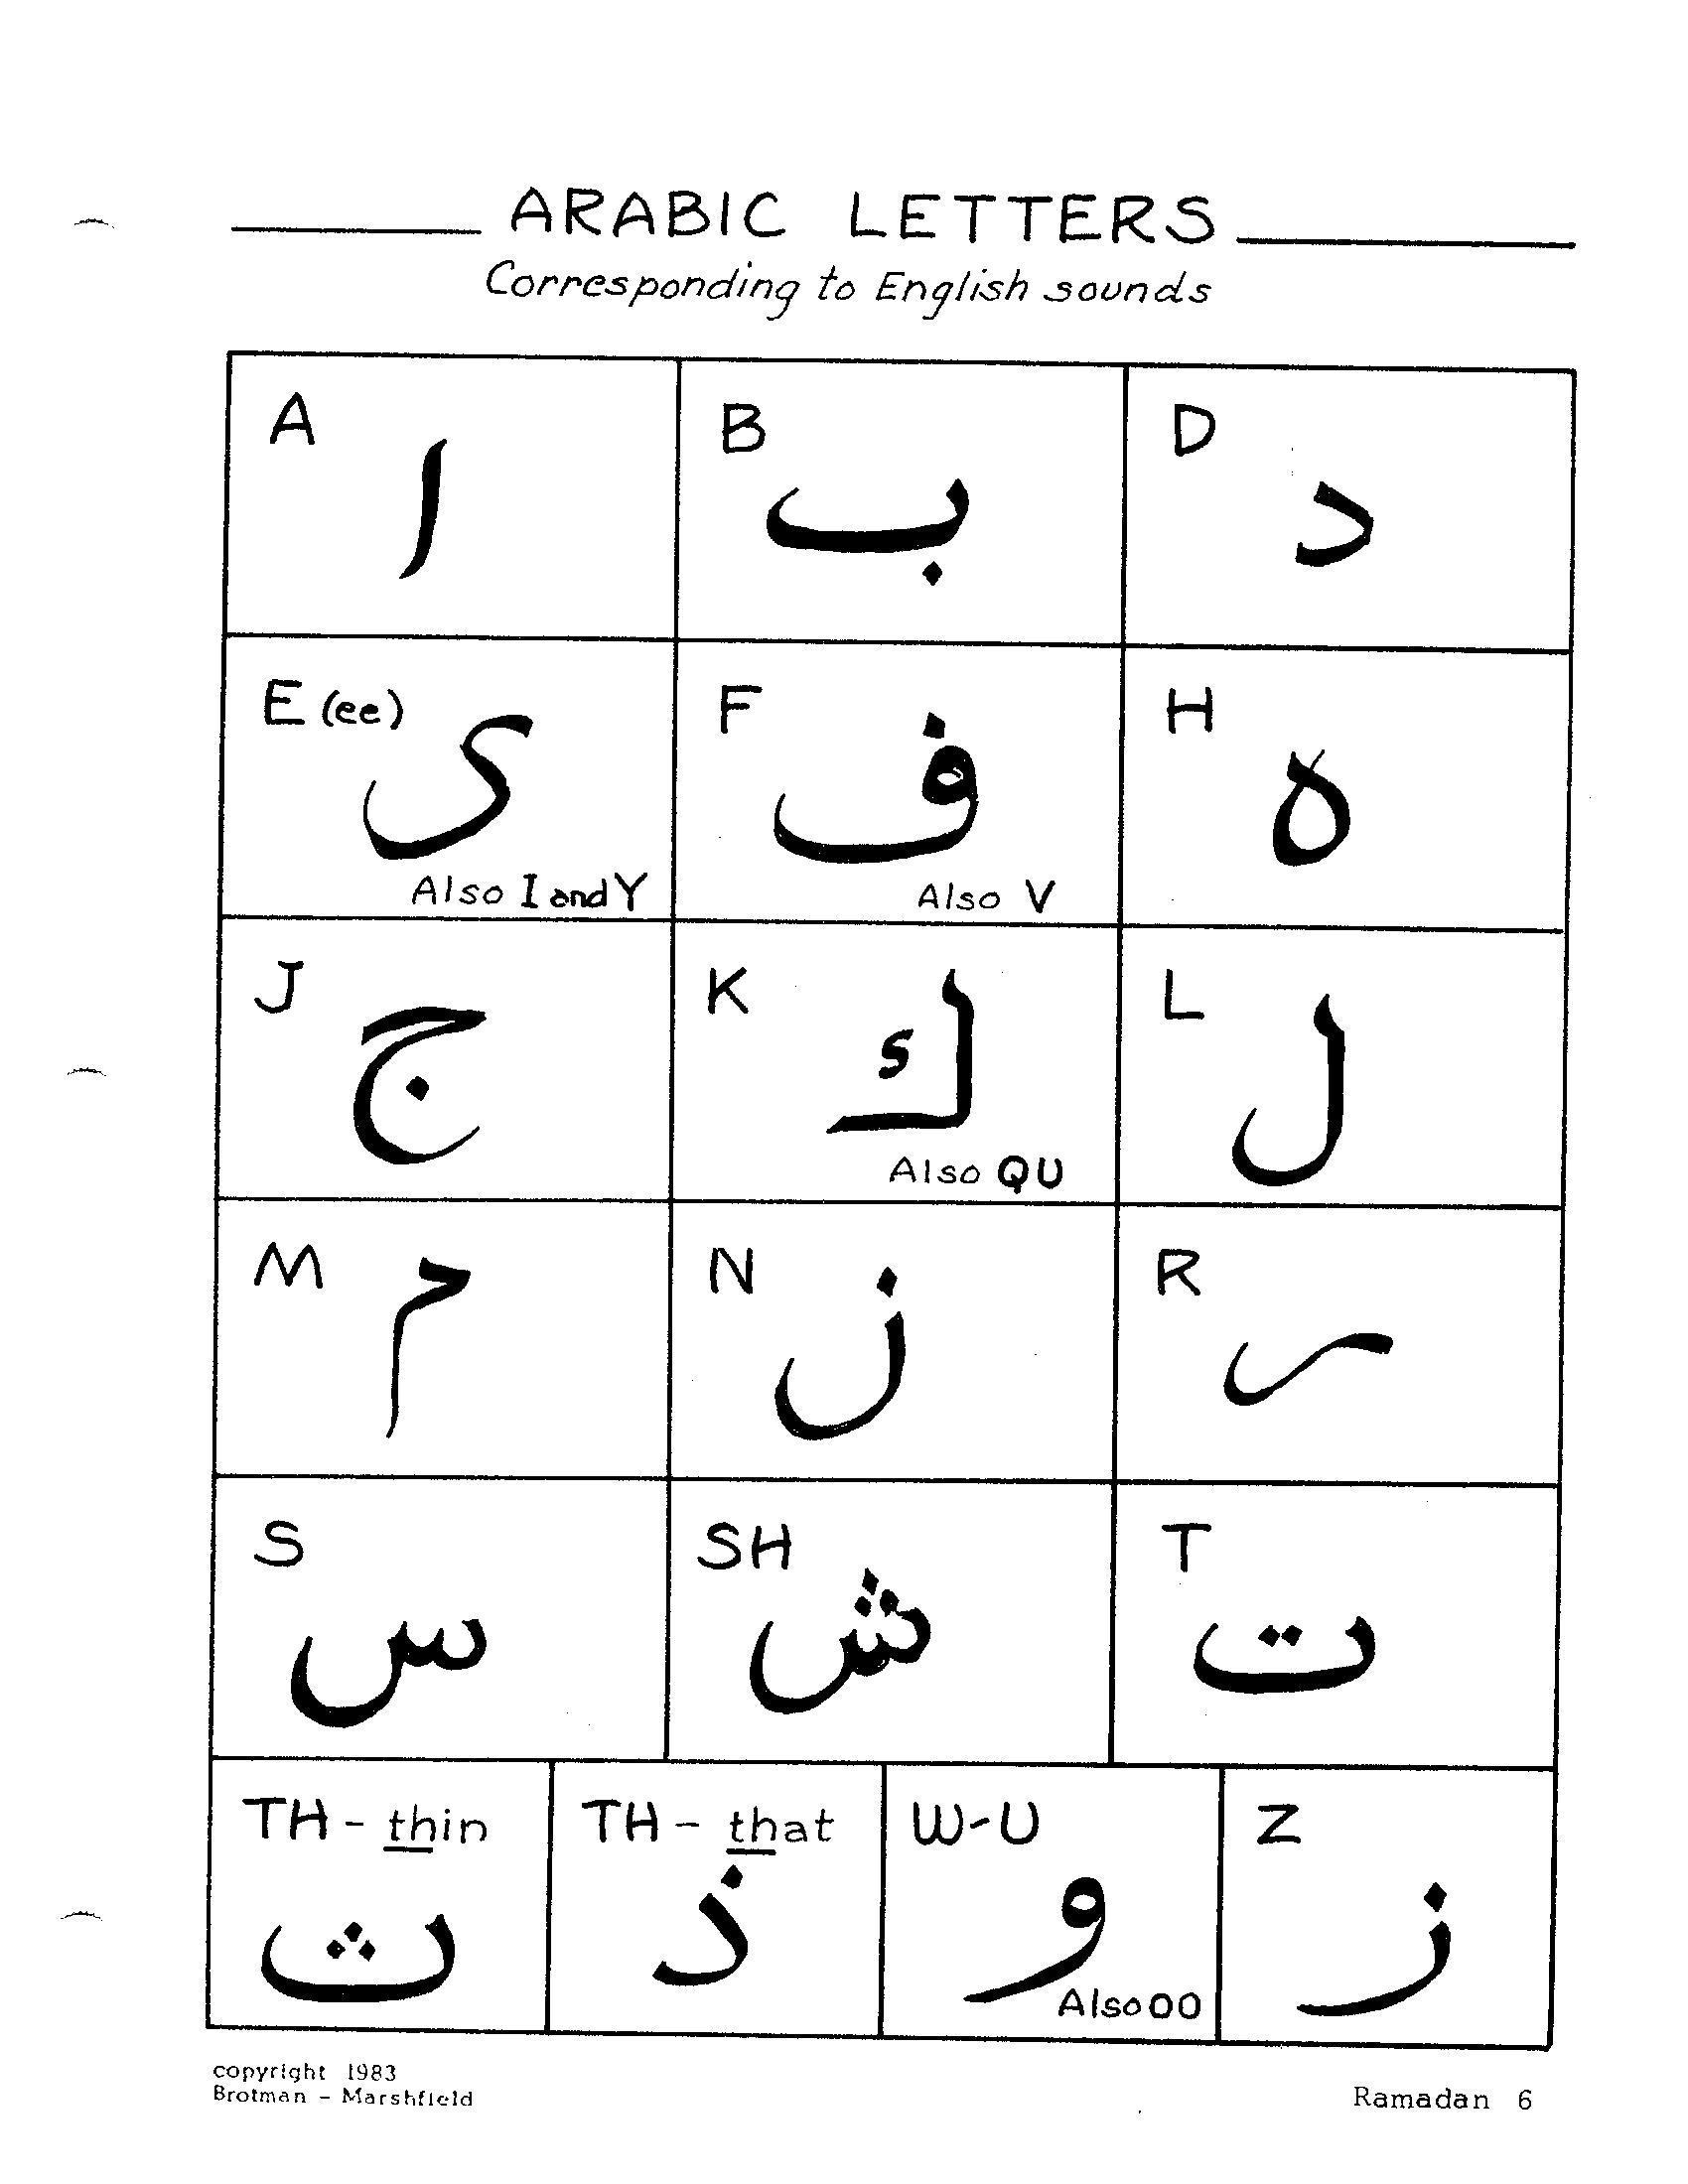 ARABIC LETTERS
Corresponding to English sounds
A
ا
B
ب
D
د
E (ee)
ى
Also I and Y
F
ف
Also V
H
ه
J
ج
K
ك
Also QU
L
ل
M
م
N
ن
R
ر
S
س
SH
ش
T
ت
TH - thin
ث
TH - that
ذ
W-U
و
Also OO
Z
ز
copyright 1983
Brotman - Marshfield
Ramadan 6